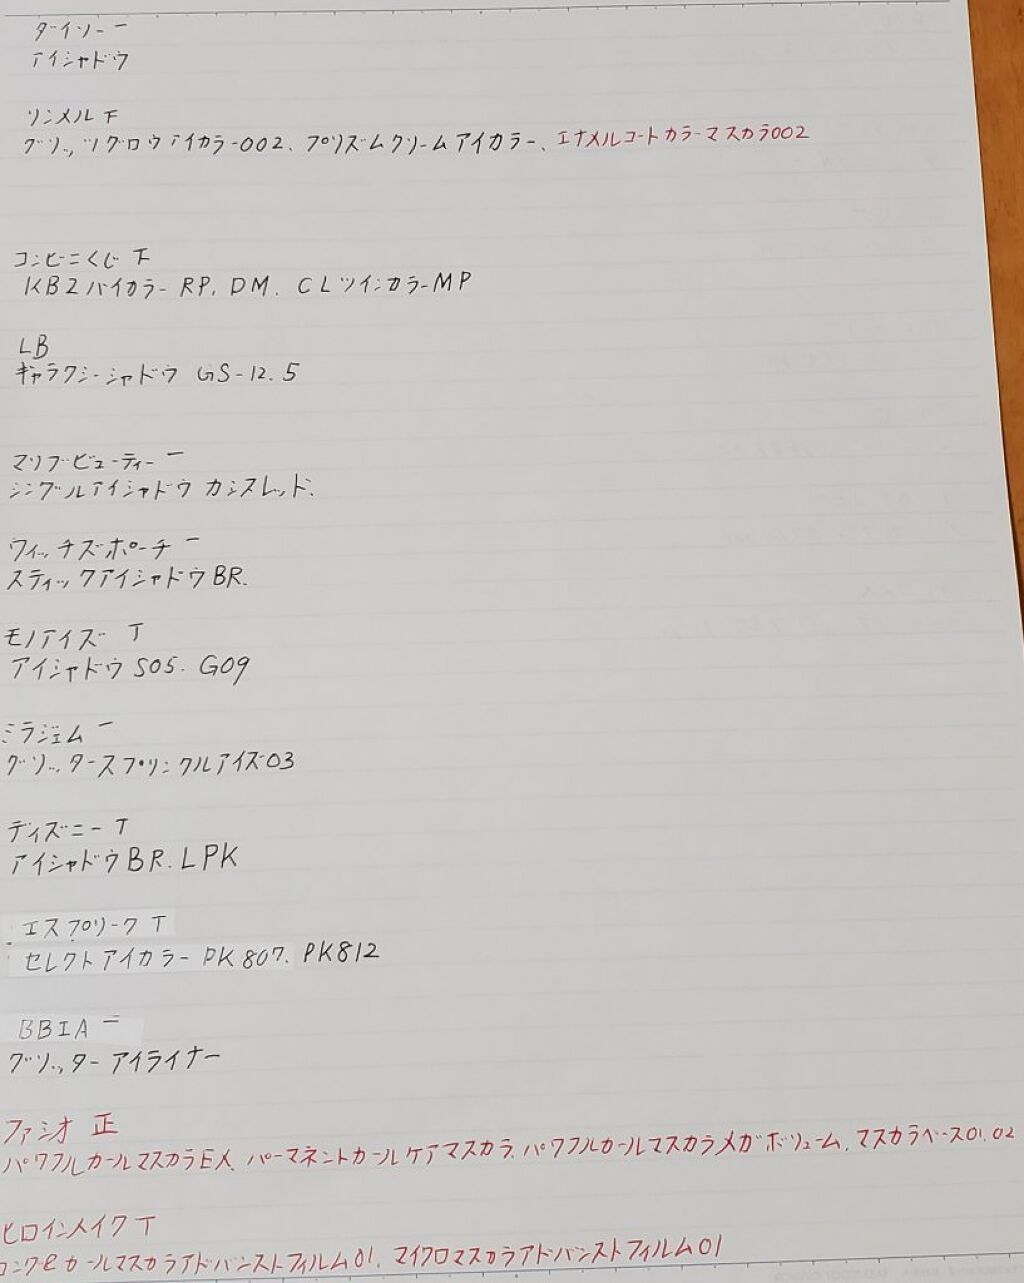 ダイソー 一
アイシャドウ
リンメル 下
グリッツグロウアイカラー002、プリズムクリームアイカラー、エナメルコートカラーマスカラ002
コンビニくじ 下
KBZバイカラー RP、DM、CLツインカラーMP
LB
ギャラクシーシャドウ GS-12.5
マリブビューティー 一
シングルアイシャドウ カシスレッド、
ウィッチズポーチ 一
スティックアイシャドウBR.
モノアイズ T
アイシャドウ S05. G09
ミラジェム 一
グリッタースプリンクルアイズ03
ディズニー T
アイシャドウBR.LPK
エスプリーク T
セレクトアイカラー PK807. PK812
BBIA 一
グリッターアイライナー
ファシオ 正
パワフルカールマスカラEX、パーマネントカールケアマスカラ、パワフルカールマスカラメガボリューム、マスカラベース01.02
ヒロインメイク T
ロング&カールマスカラアドバンストフィルム01、マイクロマスカラアドバンストフィルム01